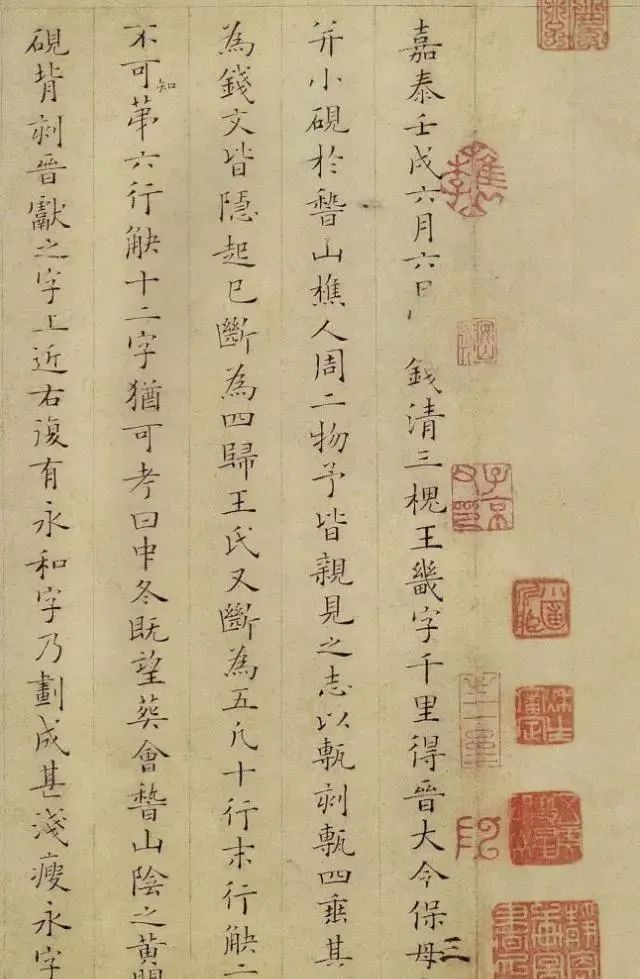 嘉泰壬戌六月六日 錢清三槐王畿字千里得晉大令保母
三
并小硯於稽山樵人周二物予皆親見之志以甎刻甎四垂其
為錢文皆隱起已斷為四歸王氏又斷為五凡十行末行缺二
不可知第六行缺十二字猶可考曰中冬既望葬會稽山陰之黃閍
硯背刻晉獻之字上近右復有永和字乃劃成甚淺瘦永字